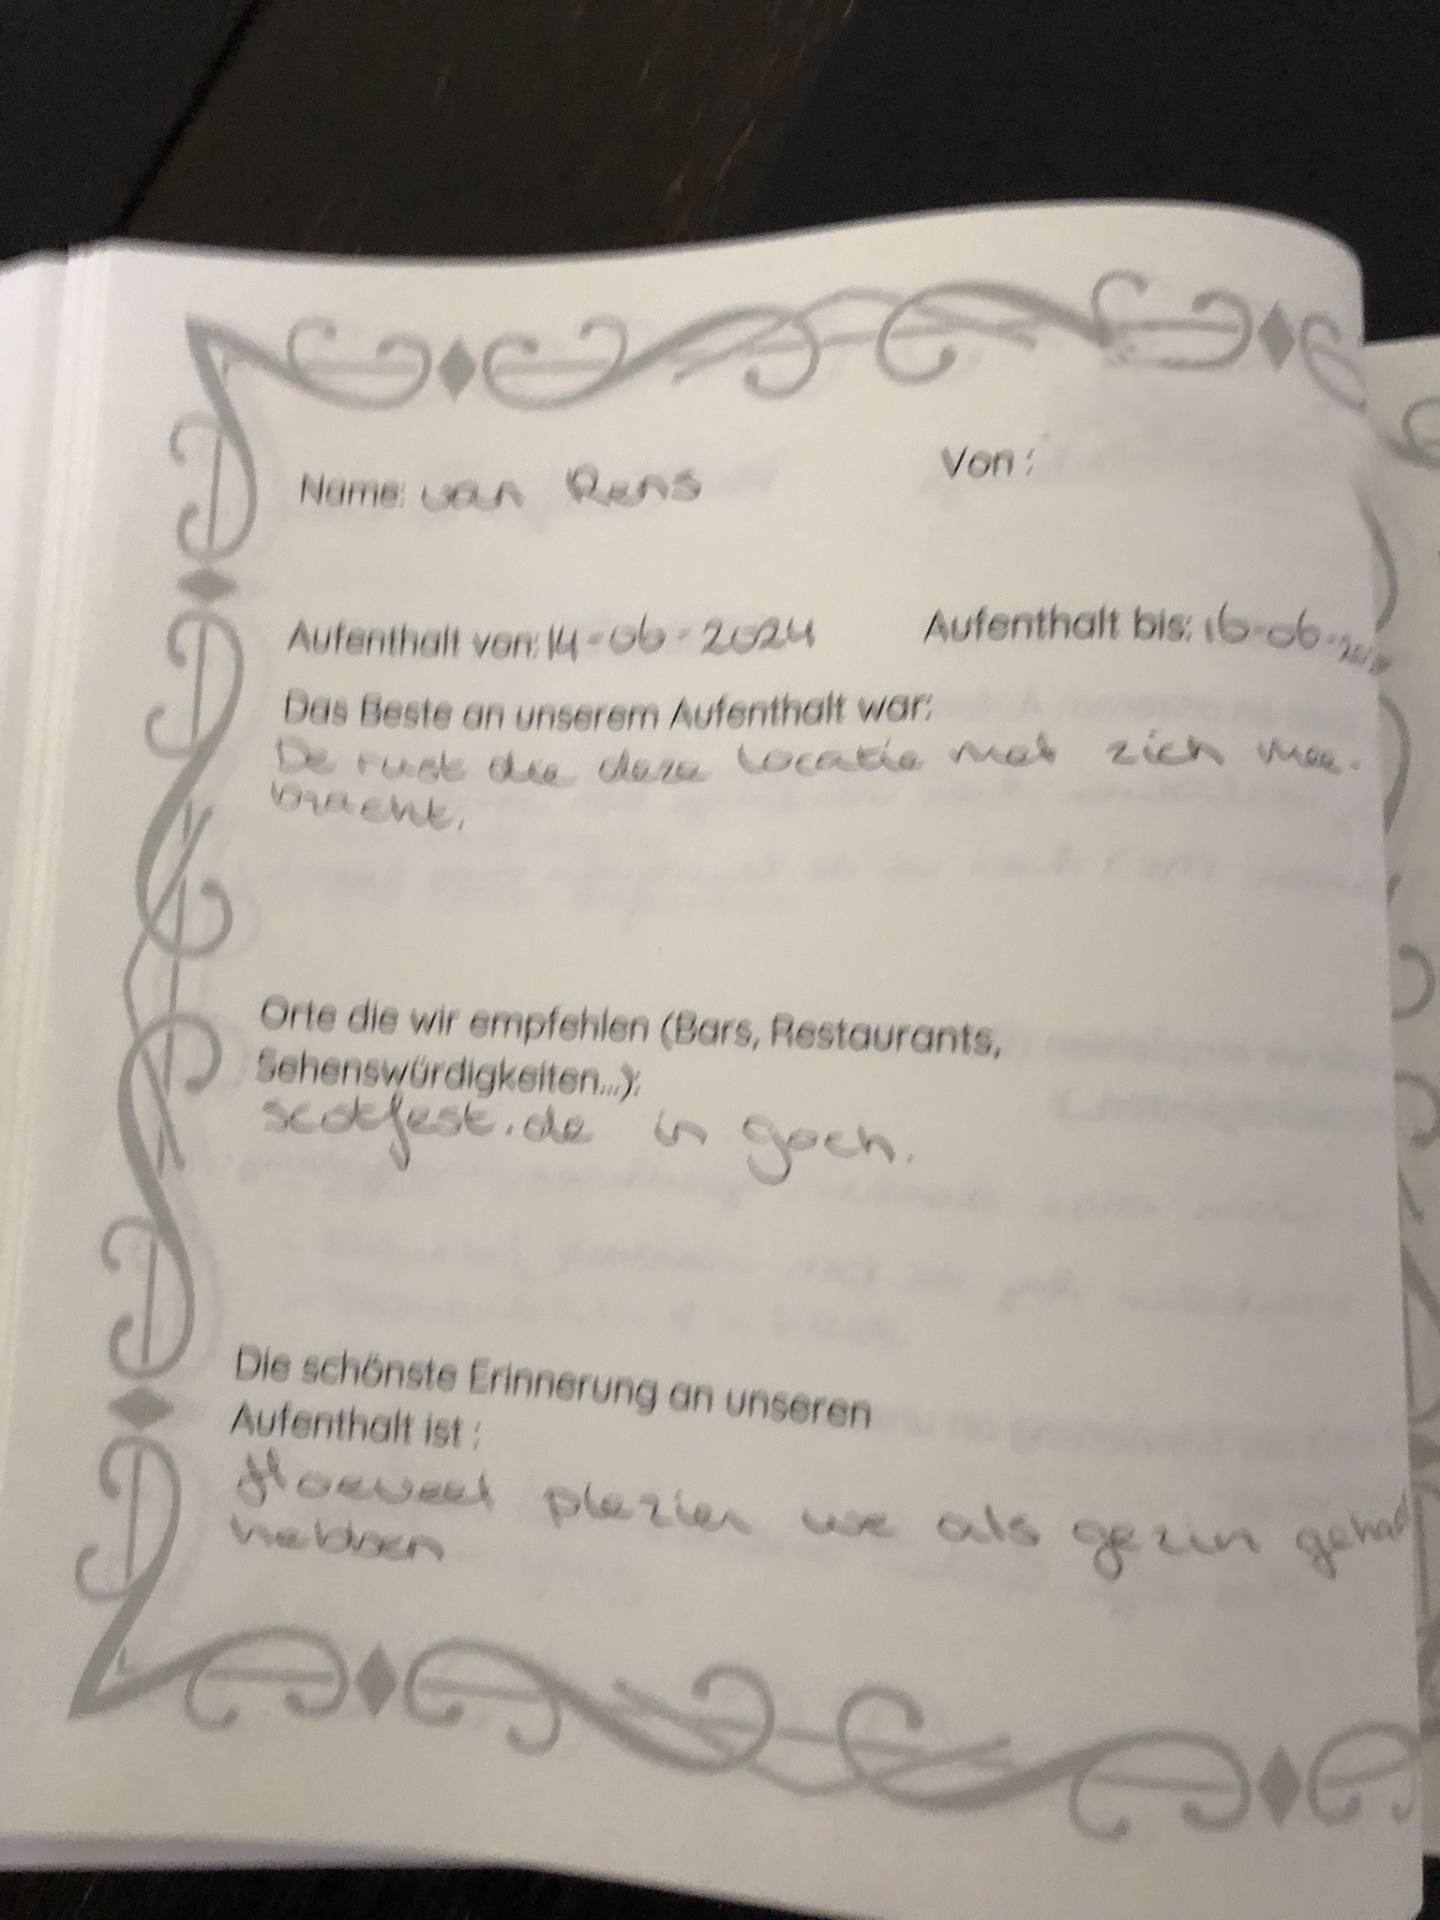 Name: van Rens
Von :
Aufenthalt von: 14-06-2024 Aufenthalt bis: 16-06-
Das Beste an unserem Aufenthalt war:
De rust die deze locatie met zich mee-
bracht.
Orte die wir empfehlen (Bars, Restaurants,
Sehenswürdigkeiten...):
scotfest.de in goch.
Die schönste Erinnerung an unseren
Aufenthalt ist :
Hoeveel plezier we als gezin gehad
hebben